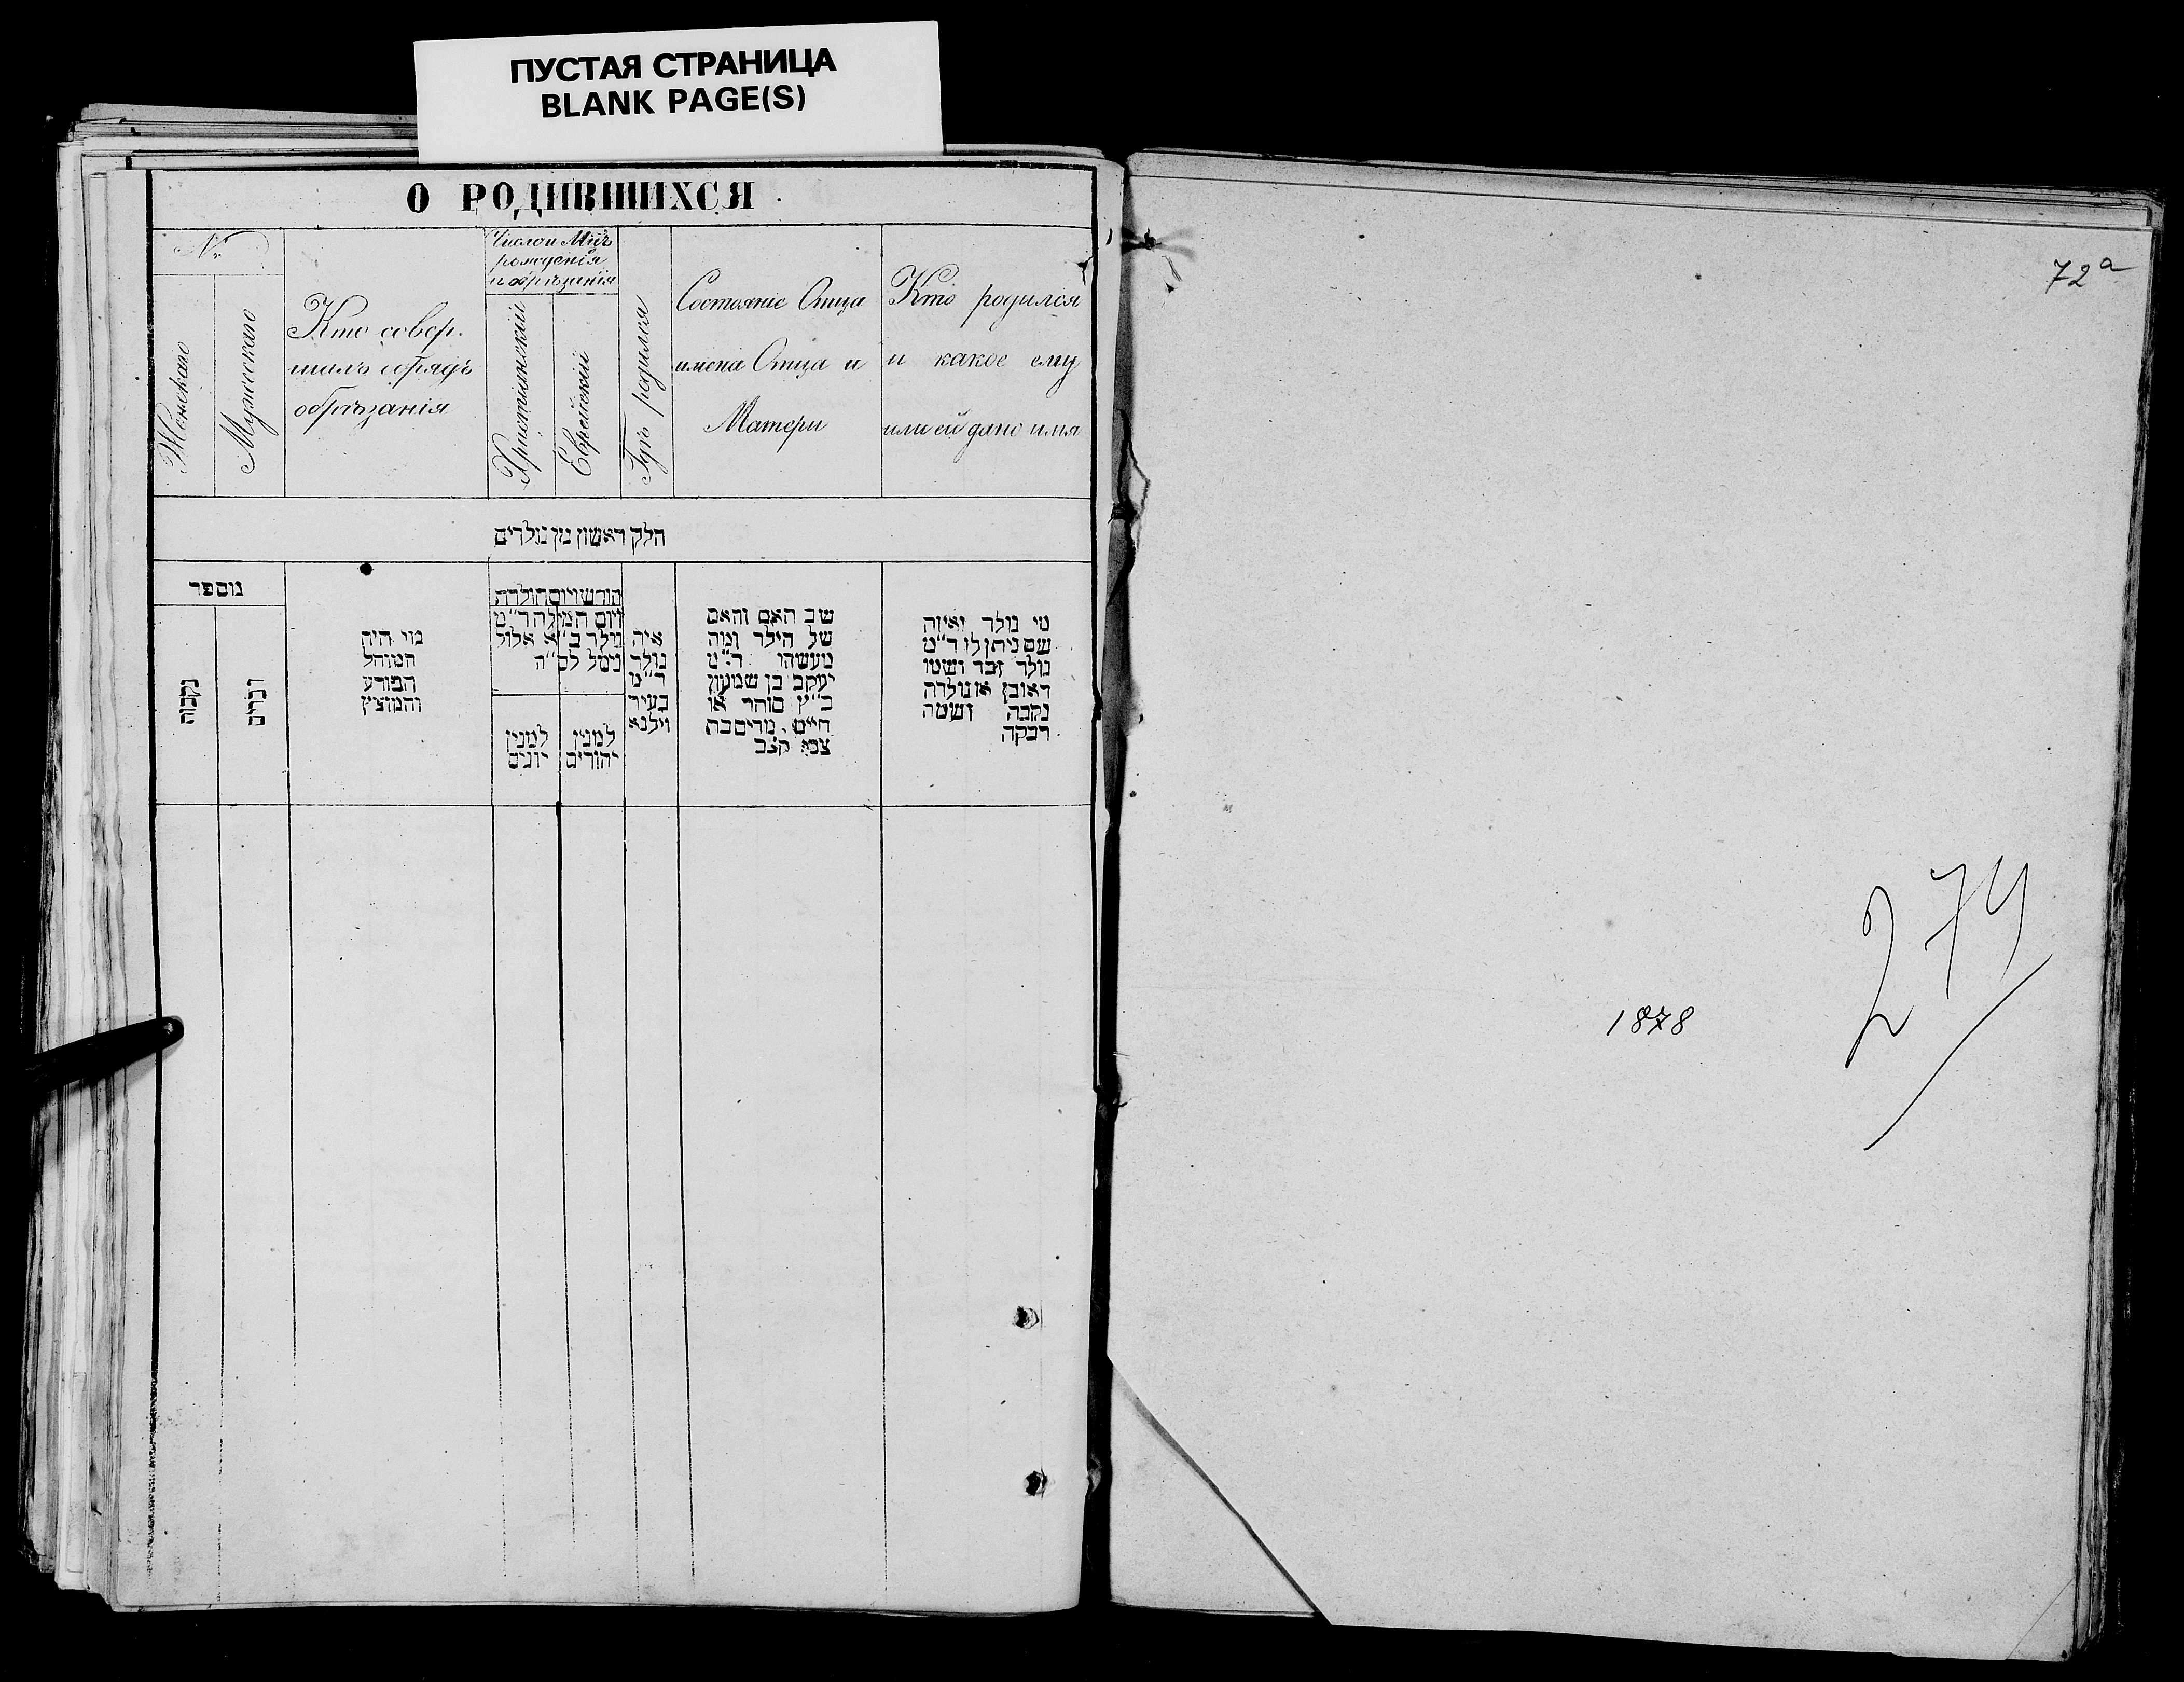 ПУСТАЯ СТРАНИЦА
BLANK PAGE(S)
О РОДИВШИХСЯ
№
Женскаго
Мужескаго
Кто совер-
шалъ обрядъ
обрѣзанія
Число и Мцъ
рожденія
и обрѣзанія
Христіянскій
Еврейскій
Гдѣ родился
Состояніе Отца
имена Отца и
Матери
Кто родился
и какое ему
или ей дано имя
חלק ראשון מן נולדים
נומפר
נקבות
זכרים
מי היה
המוהל
הפורע
והמוציץ
חודש ויום הולדת
ויום המילה ד״מ
נולד ב״א אלול
נימל לס״ה
למנין
יונים
למנין
יהודים
איה
נולד
ד״מ
בעיר
ווילנא
שב האם והאם
של הילד ומה
מעשהו ד״מ
יעקב בן שמעון
כ״ץ סוחר או
חייט, מרים בת
צבא קצב
מי נולד ואיזה
שם ניתן לו ד״מ
נולד זכר ושמו
ראובן או נולדה
נקבה ושמה
רבקה
72а
274
1878